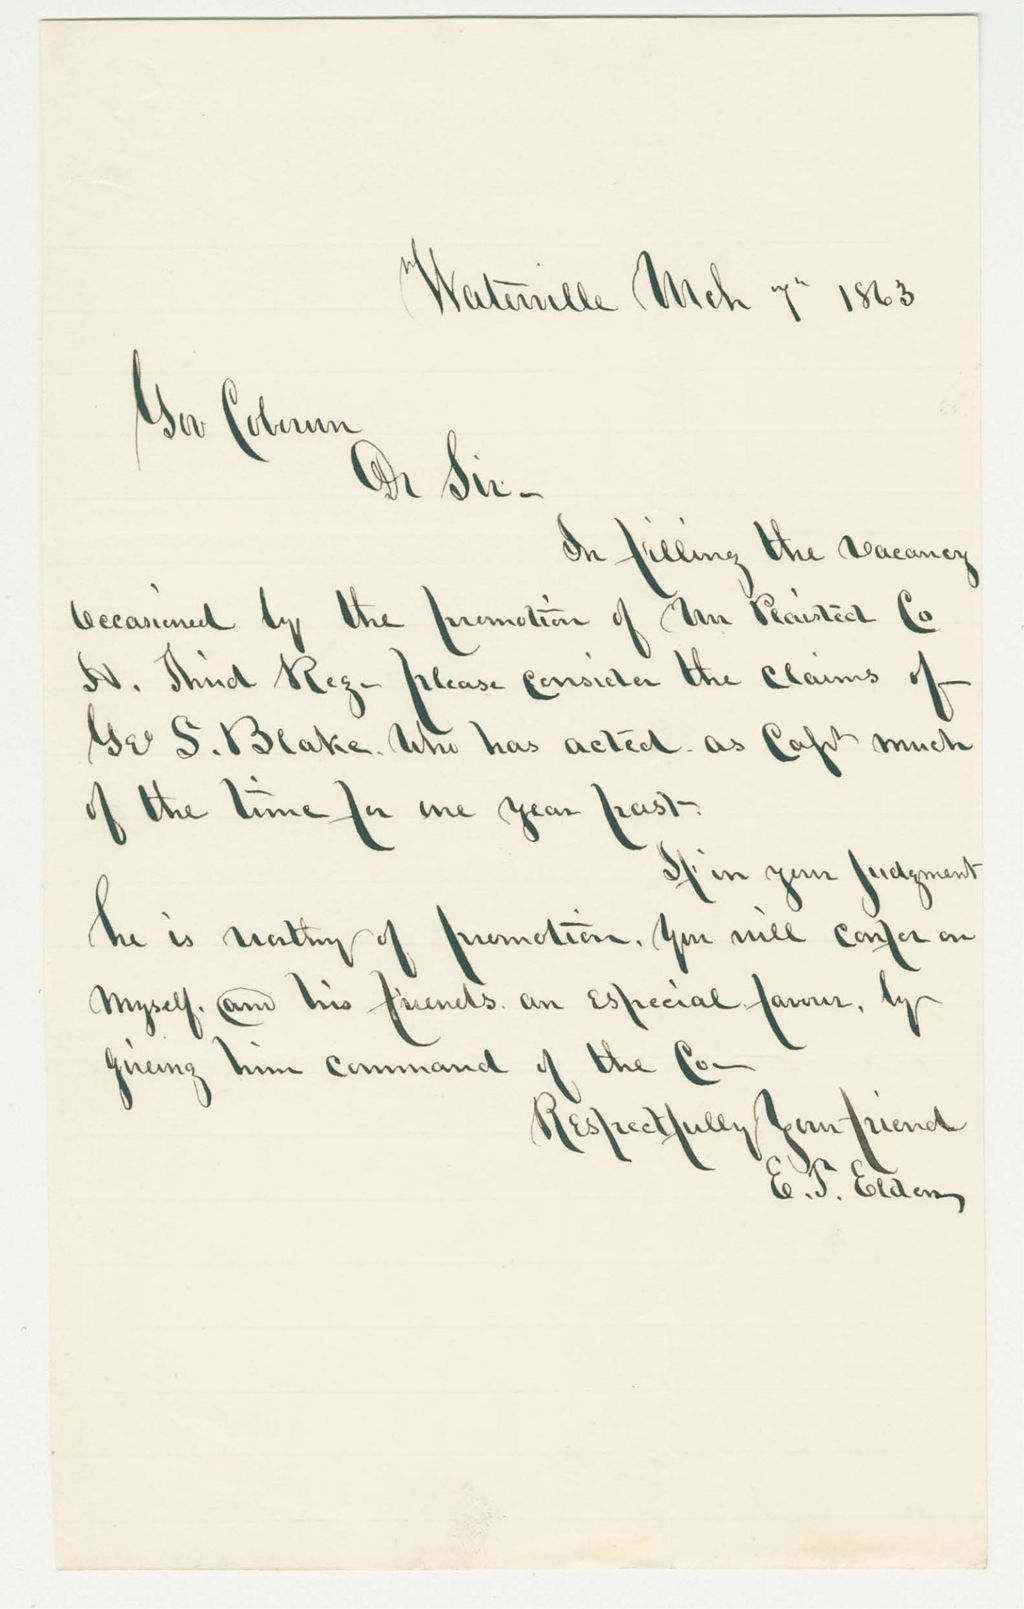 Waterville Mch 7" 1863
Gov Coburn
Dr Sir -
In filling the vacancy
occasioned by the promotion of Mr Plaisted Co
H. Third Reg - please consider the claims of
Geo S. Blake. Who has acted as Capt much
of the time for one year past.
If in your judgment
he is worthy of promotion. You will confer on
myself. and his friends an especial favour, by
giveing him command of the Co -
Respectfully Your friend
E. T. Elden